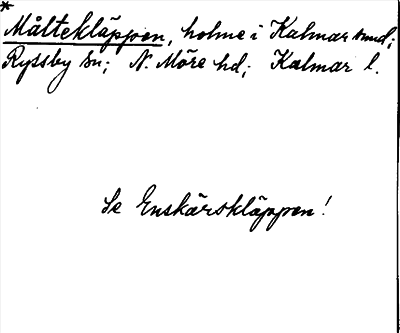 *
Måltekläppen, holme i Kalmar sund;
Ryssby sn; N. Möre hd; Kalmar l.
Se Enskärskläppen!